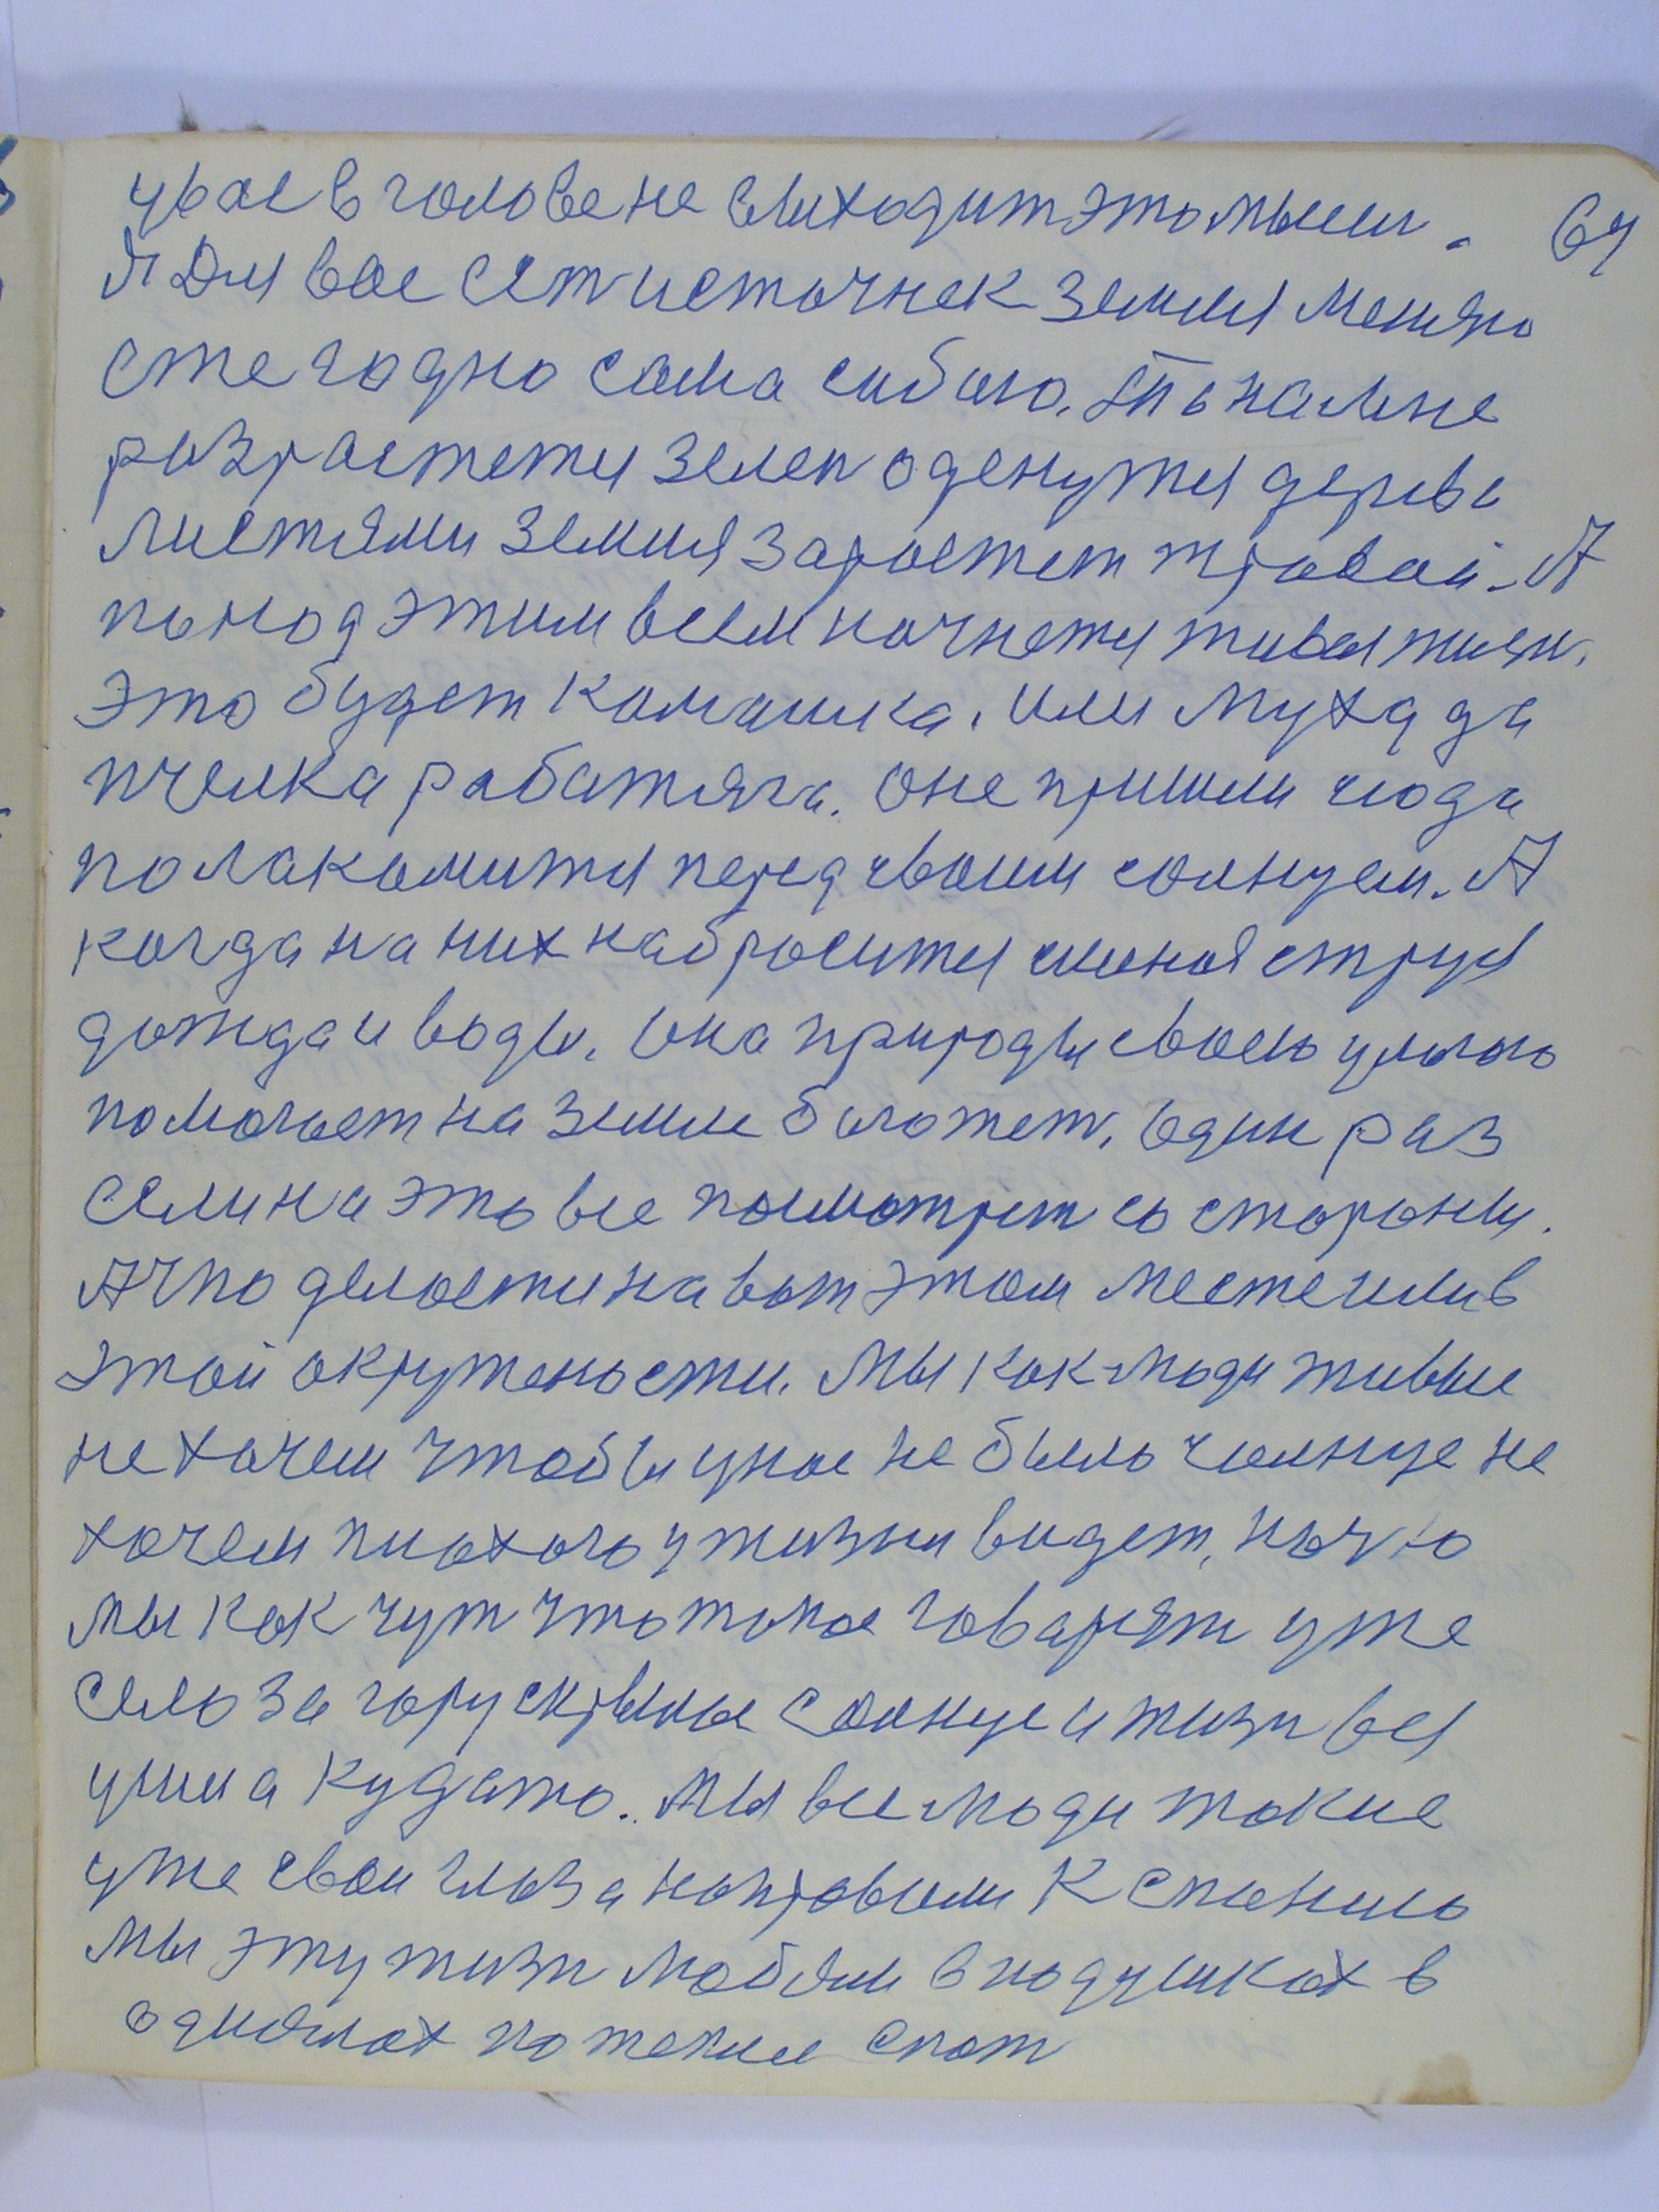 увае в голове не выходит это мысли. 64
Я для вас сяти источнек земля меняю
стегодно сама собою. То на мне
разрастетця зелен оденутця деревя
листями земля зарастет травой. А
по под этим всем начнетця живая жизн.
это будет камашка. или муха да
пчелка работяга. оне пришли сюда
полакомитця перед своим солнцем. А
когда на них набросится силная струя
дожда и воды. она природы своею умою
помогает на земли бытожет. один раз
если на это все посмотрет со стороны.
А что делаетця на вот этом месте или в
этой окружености. Мы как люди живые
не хочем чтобы унас не было солнце не
хочем плохого у жизни видет, ночю
мы как чут что токое говарят уже
село за гору скрылас солнце и жизн вся
ушла кудато. Мы все люди токие
уже свои глаза направили к спанию
мы эту жизн любим в подушках в
одиялах по теплее спат